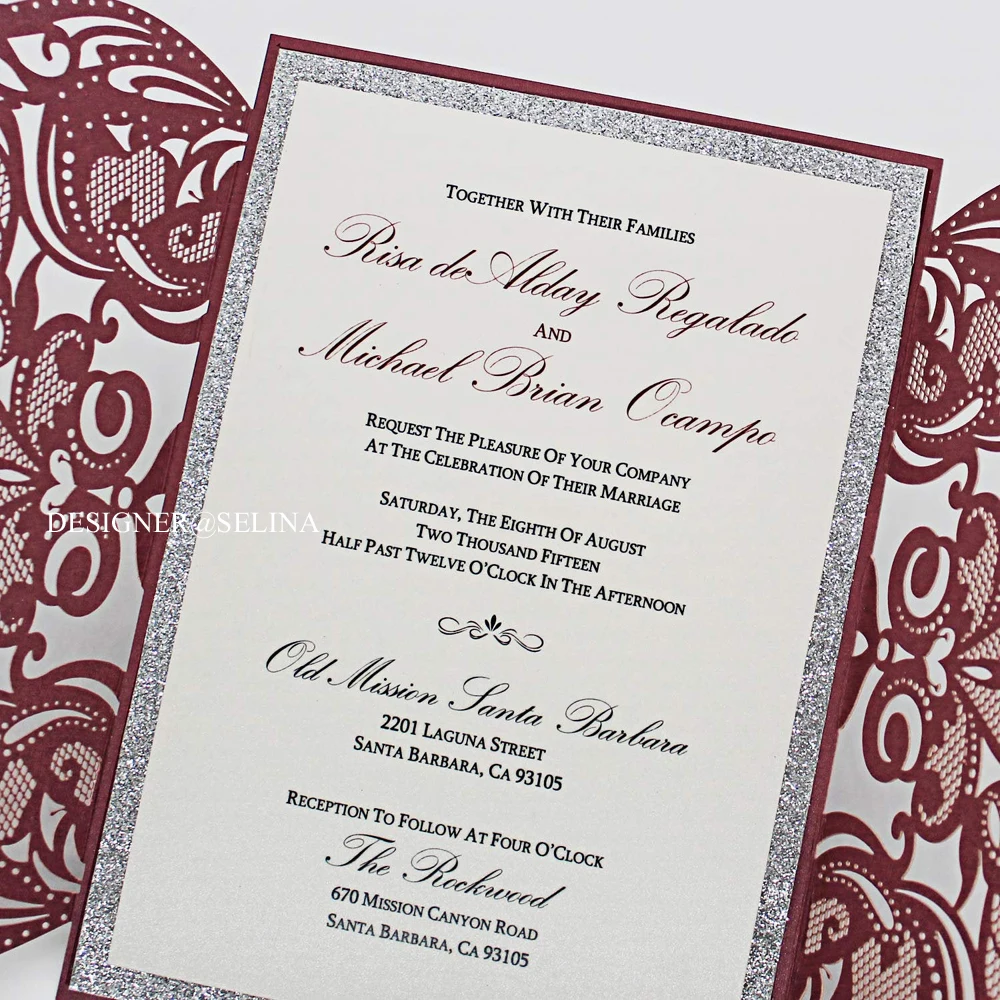 TOGETHER WITH THEIR FAMILIES
Risa de Alday Regalado
AND
Michael Brian Ocampo
REQUEST THE PLEASURE OF YOUR COMPANY
AT THE CELEBRATION OF THEIR MARRIAGE
SATURDAY, THE EIGHTH OF AUGUST
TWO THOUSAND FIFTEEN
HALF PAST TWELVE O'CLOCK IN THE AFTERNOON
DESIGNER@SELINA
Old Mission Santa Barbara
2201 LAGUNA STREET
SANTA BARBARA, CA 93105
RECEPTION TO FOLLOW AT FOUR O'CLOCK
The Rockwood
670 MISSION CANYON ROAD
SANTA BARBARA, CA 93105